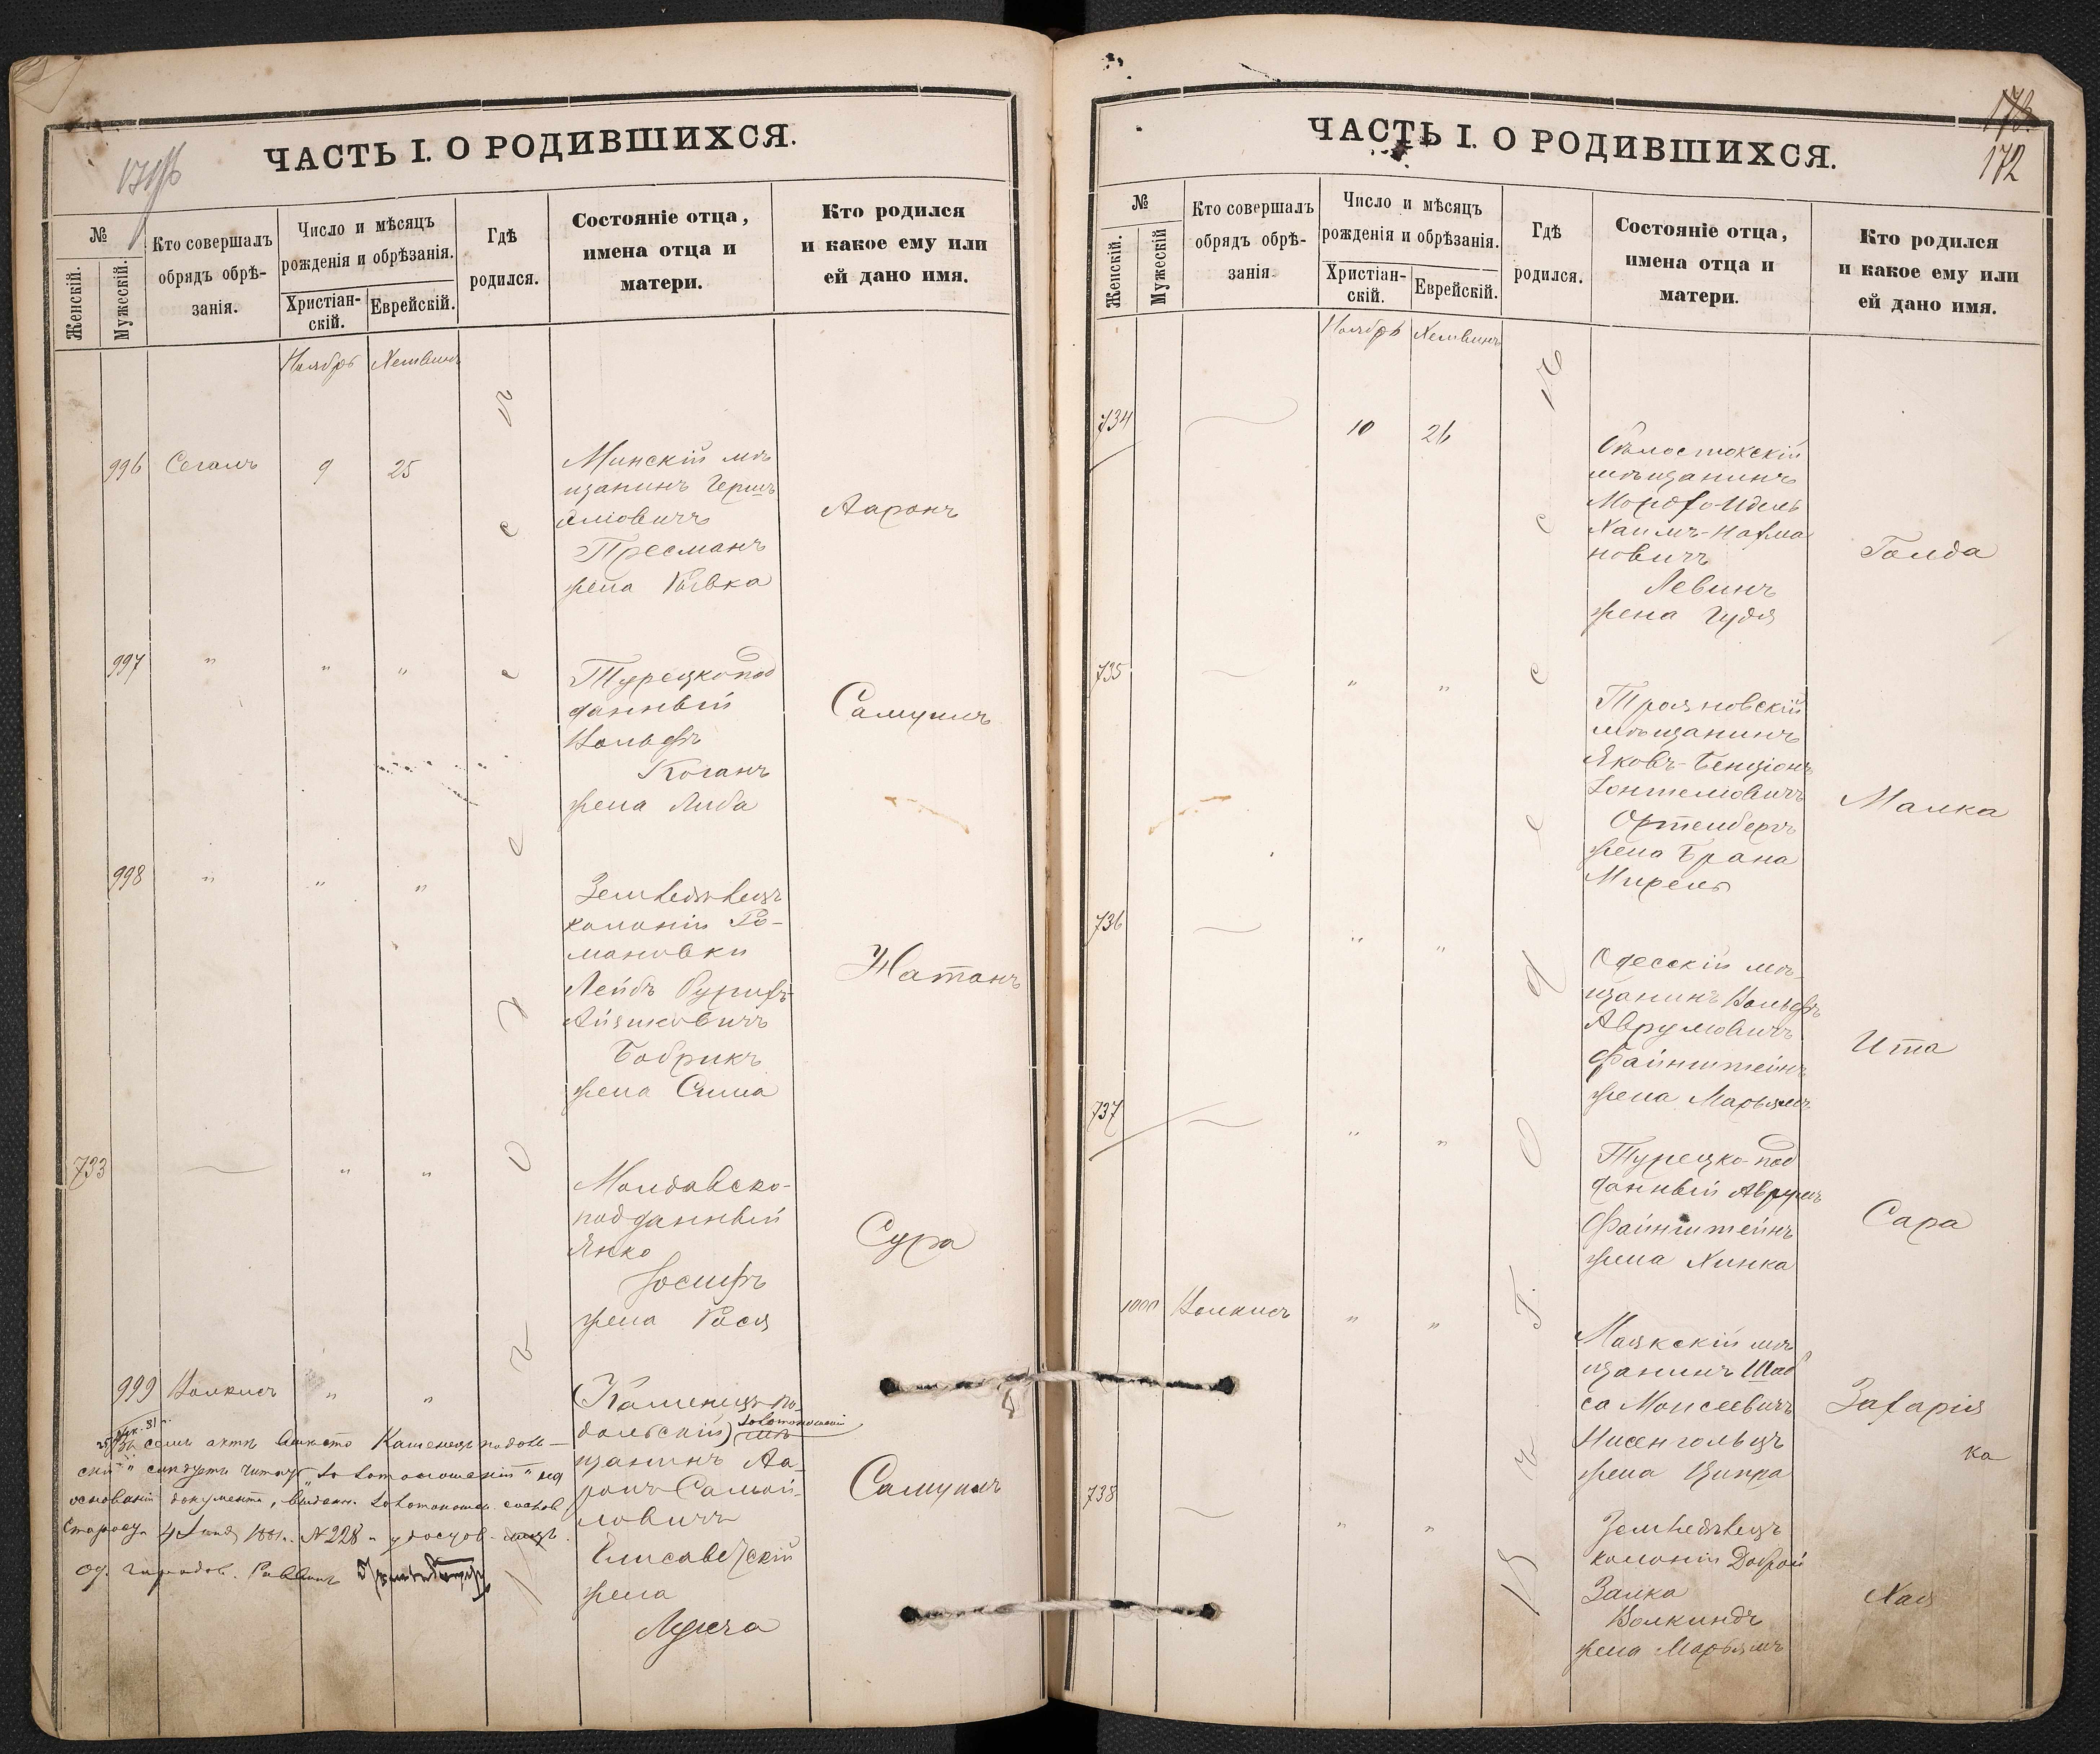 ЧАСТЬ I. О РОДИВШИХСЯ.
№
Женскій.
Мужескій.
Кто совершалъ
обрядъ обрѣ-
занія.
Число и мѣсяцъ
рожденія и обрѣзанія.
Христіан-
скій.
Еврейскій.
Гдѣ
родился.
Состояніе отца,
имена отца и
матери.
Кто родился
и какое ему или
ей дано имя.
Ноябрь
996 Сегалъ 9 25
Минскій мѣ
щанинъ Герш
Пресман
жена Ривка
Ааронъ
997 " " "
Турецкопод
данный
Вольфъ
Коганъ
жена Либа
Самуилъ
998 " " "
колоніи Ро-
мановки
Лейбъ
Айзиковичъ
Бобрикъ
жена Сима
Натанъ
733 — " "
Молдавско-
подданный
Янко
Іосифъ
жена Рося
Сура
999 Волкисъ " "
Каменецъ По-
дольскій
щанинъ Аа-
ронъ Самой-
ловичъ
Елисаветскій
жена
Самуилъ
Въ семъ актѣ вмѣсто Каменецъ подоль-
скій слѣдуетъ читать на
основаніи документа, выданн.
Старосту 4 1881 г. № 228
Од. городов. Раввинъ
въ Одессѣ
ЧАСТЬ I. О РОДИВШИХСЯ.
172
№
Женскій.
Мужескій
Кто совершалъ
обрядъ обрѣ-
занія.
Число и мѣсяцъ
рожденія и обрѣзанія.
Христіан-
скій.
Еврейскій.
Гдѣ
родился.
Состояніе отца,
имена отца и
матери.
Кто родился
и какое ему или
ей дано имя.
Ноябрь
734 — 10 26
Бѣлостокскій
мѣщанинъ
Мордхо-Идель
Хаимъ-Нахма
новичъ
Левинъ
жена Гудя
Голда
735 — " "
Трояновскій
мѣщанинъ
Яковъ-Бенціонъ
Ортенбергъ
жена Брана
Мирель
Малка
736 — " "
Одесскій мѣ-
щанинъ Вольфъ
Аврумовичъ
Файнштейнъ
жена Марьямъ
Ита
737 — " "
Турецко-под
данный Аврумъ
Файнштейнъ
жена Хинка
Сара
1000 Волкисъ " "
Маякскій мѣ
щанинъ Шаб
са Моисеевичъ
Нисенгольцъ
жена Ципра
Захарія
ка
738 — " "
Земледѣлецъ
колоніи Доброй
Залка
Волкиндъ
жена Марьямъ
Хая
въ г. Одессѣ